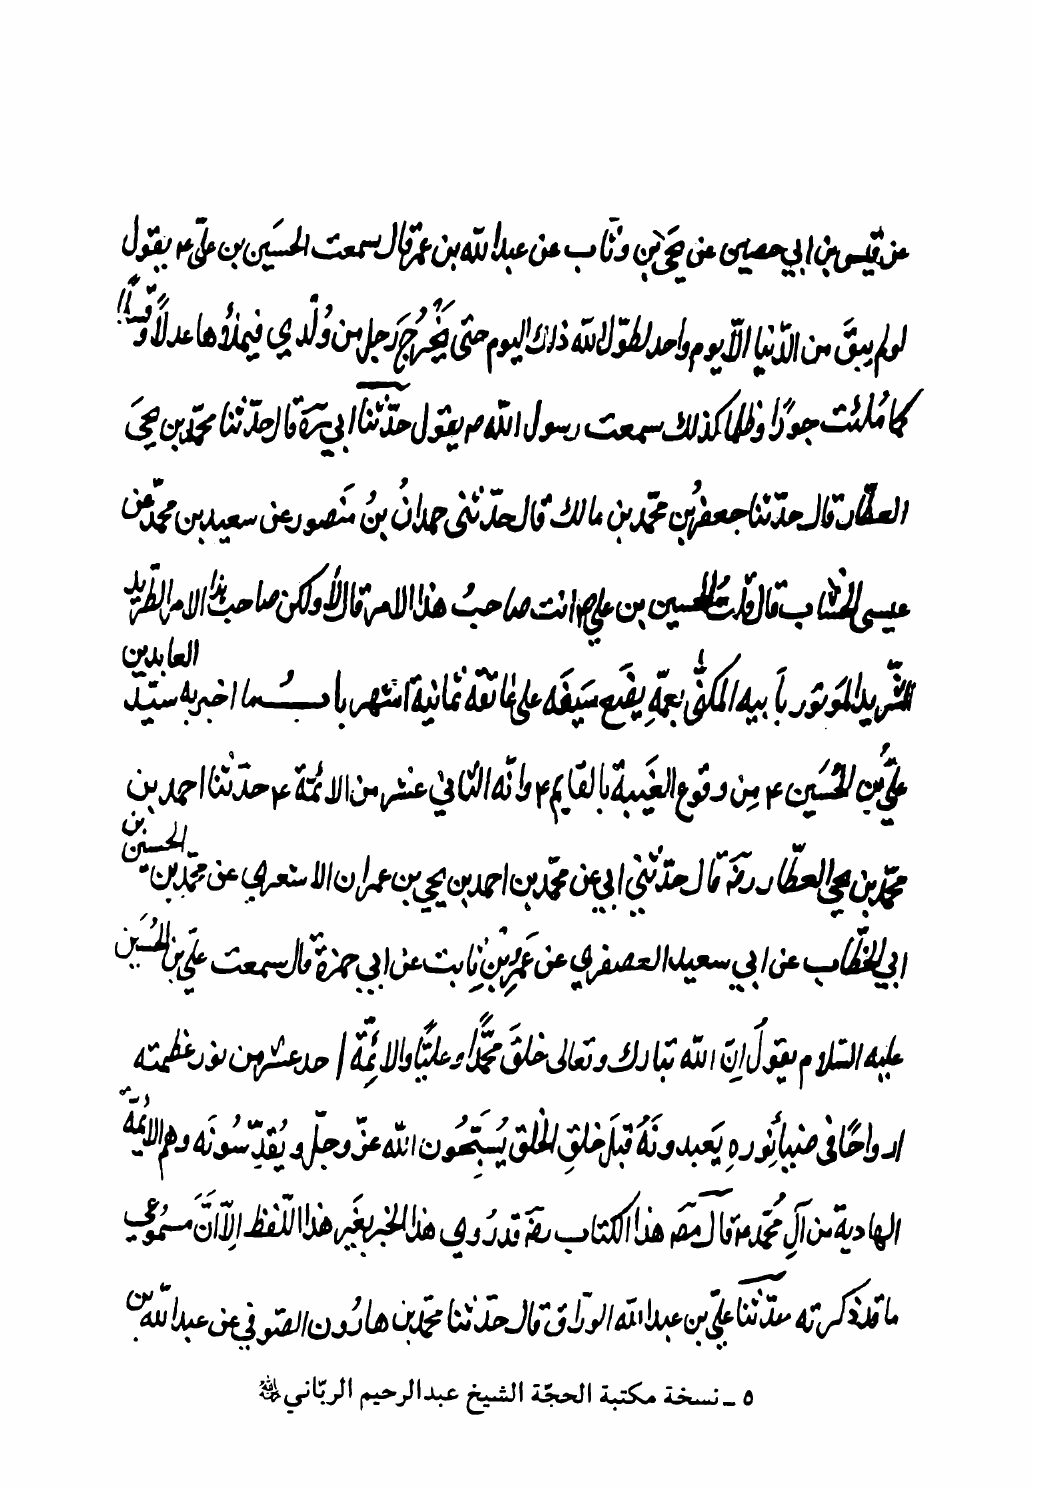 عن قيس بن ابي حصين عن يحيى بن وثاب عن عبدالله بن عمر قال سمعت الحسَين بن عليّ ع يقول
لو لم يبقَ من الدّنيا الّا يوم واحد لطوّل الله ذلك اليوم حتى يَخْرُجَ رَجل من وُلدي فيملأُها عدلًا وقسطًا
كما مُلئت جورًا وظلما كذلك سمعت رسول الله ص يقول حدّثنا ابي رَه قال حدّثنا محمّد بن يحيى
العطّار قال حدّثنا جعفر بن محمّد بن مالك قال حدّثنى حمدانُ بنُ مَنصور عن سعيد بن محمّد عن
عيسى الخشّاب قال قلتُ للحسين بن علي ع انت صاحبُ هذا الامر قال لا ولكن صاحب هذا الامر الطّريد
الشّريد الموَتور بأبيه المكنّى بعمّهِ يضَع سَيفَه على عاتقه ثمانية اشهر باب ما اخبر به سيّد العابدين
عليُّ بن الحُسَين ع مِن وقوع الغَيبة بالقايم ع وانّه الثاني عشر من الائمّة ع حدّثنا احمد بن
محمّد بن يحيى العطّار رضَه قال حدّثني ابي عن محمّد بن احمد بن يحيى بن عمران الاشعري عن محمّد بن الحسين بن
ابي الخطّاب عن ابي سعيد العصفري عن عَمرو بن ثابت عن ابي حمزة قال سمعت عليّ بن الحُسَين
عليه السّلام يقولُ اِنّ الله تبارك وتعالى خلقَ محمّدًا وعليًّا والائمّة الاحد عشر من نور عظمته
ارواحًا في ضياءِ نُوره يَعبدونَهُ قبلَ خلقِ الخلق يُسَبّحُون الله عزّ وجلّ ويُقدّسُونَه وهم الائمّة
الهادية من آلِ محمّد ع قال مصَه هذا الكتاب رضَه قد رُوي هذا الخبر بغَير هذا اللّفظ اِلّا انَّ مسمُوعي
ما قد ذكرته حدّثنا عليّ بن عبدالله الورّاق قال حدّثنا محمّد بن هارُون الصّوفي عن عبدالله بن
٥ ـ نسخة مكتبة الحجّة الشيخ عبدالرحيم الربّاني ﵀